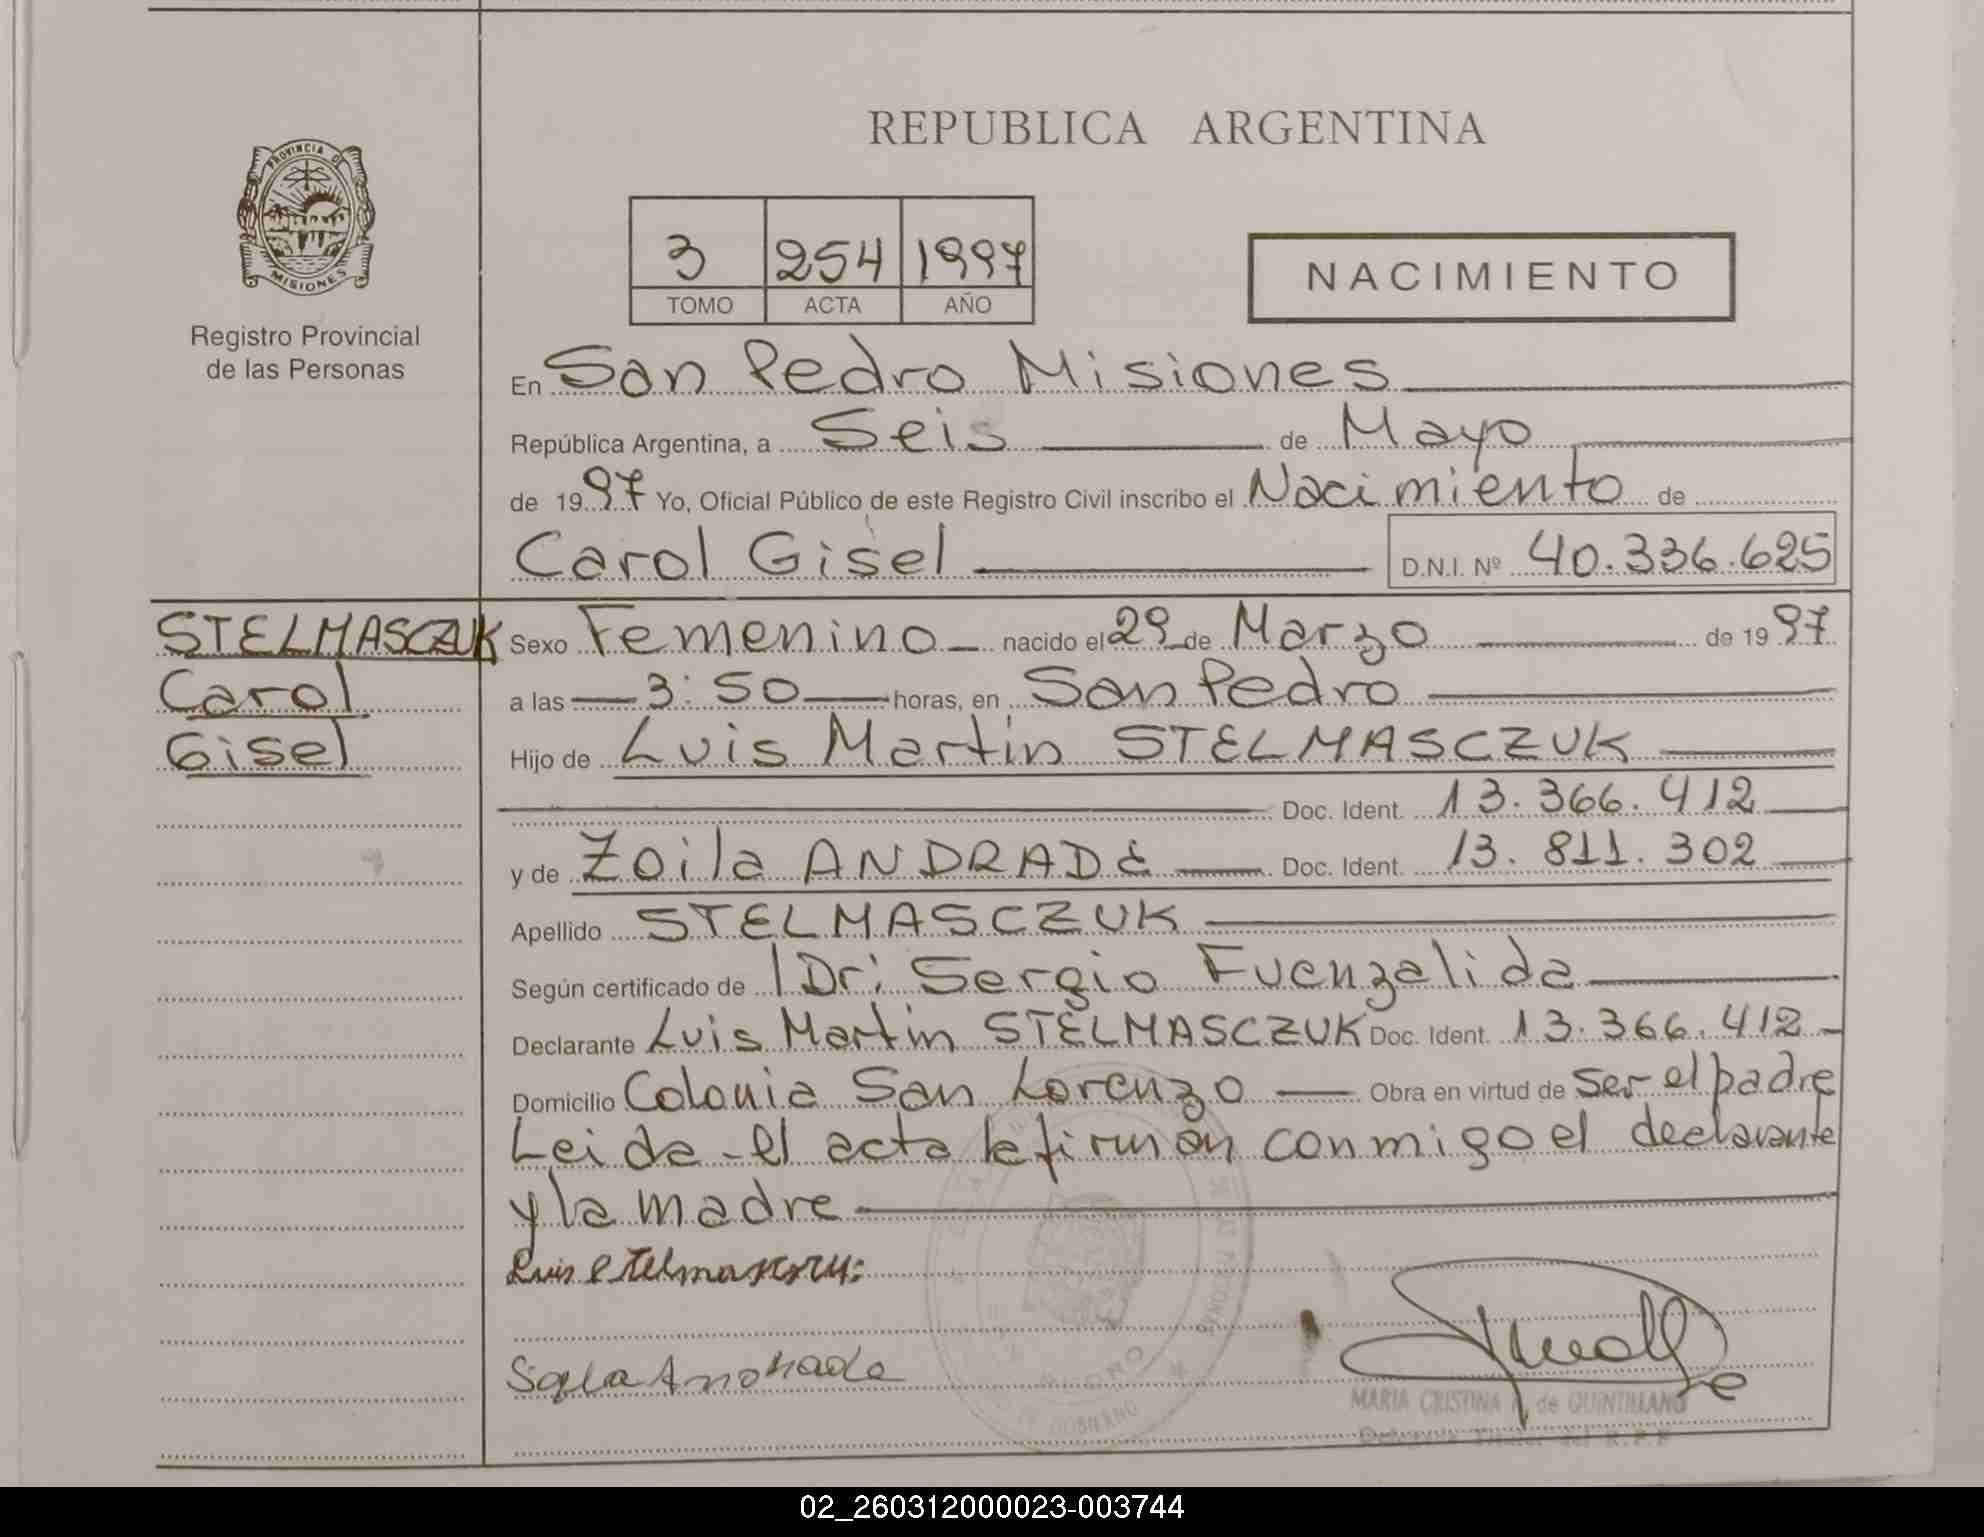 REPUBLICA ARGENTINA
PROVINCIA DE
MISIONES
3 254 1997
TOMO ACTA AÑO
NACIMIENTO
Registro Provincial
de las Personas
En San Pedro Misiones
República Argentina, a Seis de Mayo
de 1997 Yo, Oficial Público de este Registro Civil inscribo el Nacimiento de
Carol Gisel D.N.I. Nº 40.336.625
STELMASCZUK
Carol
Gisel
Sexo Femenino nacido el 29 de Marzo de 1997
a las 3:50 horas, en San Pedro
Hijo de Luis Martin STELMASCZUK
Doc. Ident. 13.366.412
y de Zoila ANDRADE Doc. Ident. 13.811.302
Apellido STELMASCZUK
Según certificado de Dr: Sergio Fuenzalida
Declarante Luis Martin STELMASCZUK Doc. Ident. 13.366.412
Domicilio Colonia San Lorenzo Obra en virtud de ser el padre
Leida el acta la firman conmigo el declarante
y la madre
Luis
MARIA CRISTINA de QUINTILLANO
02_260312000023-003744